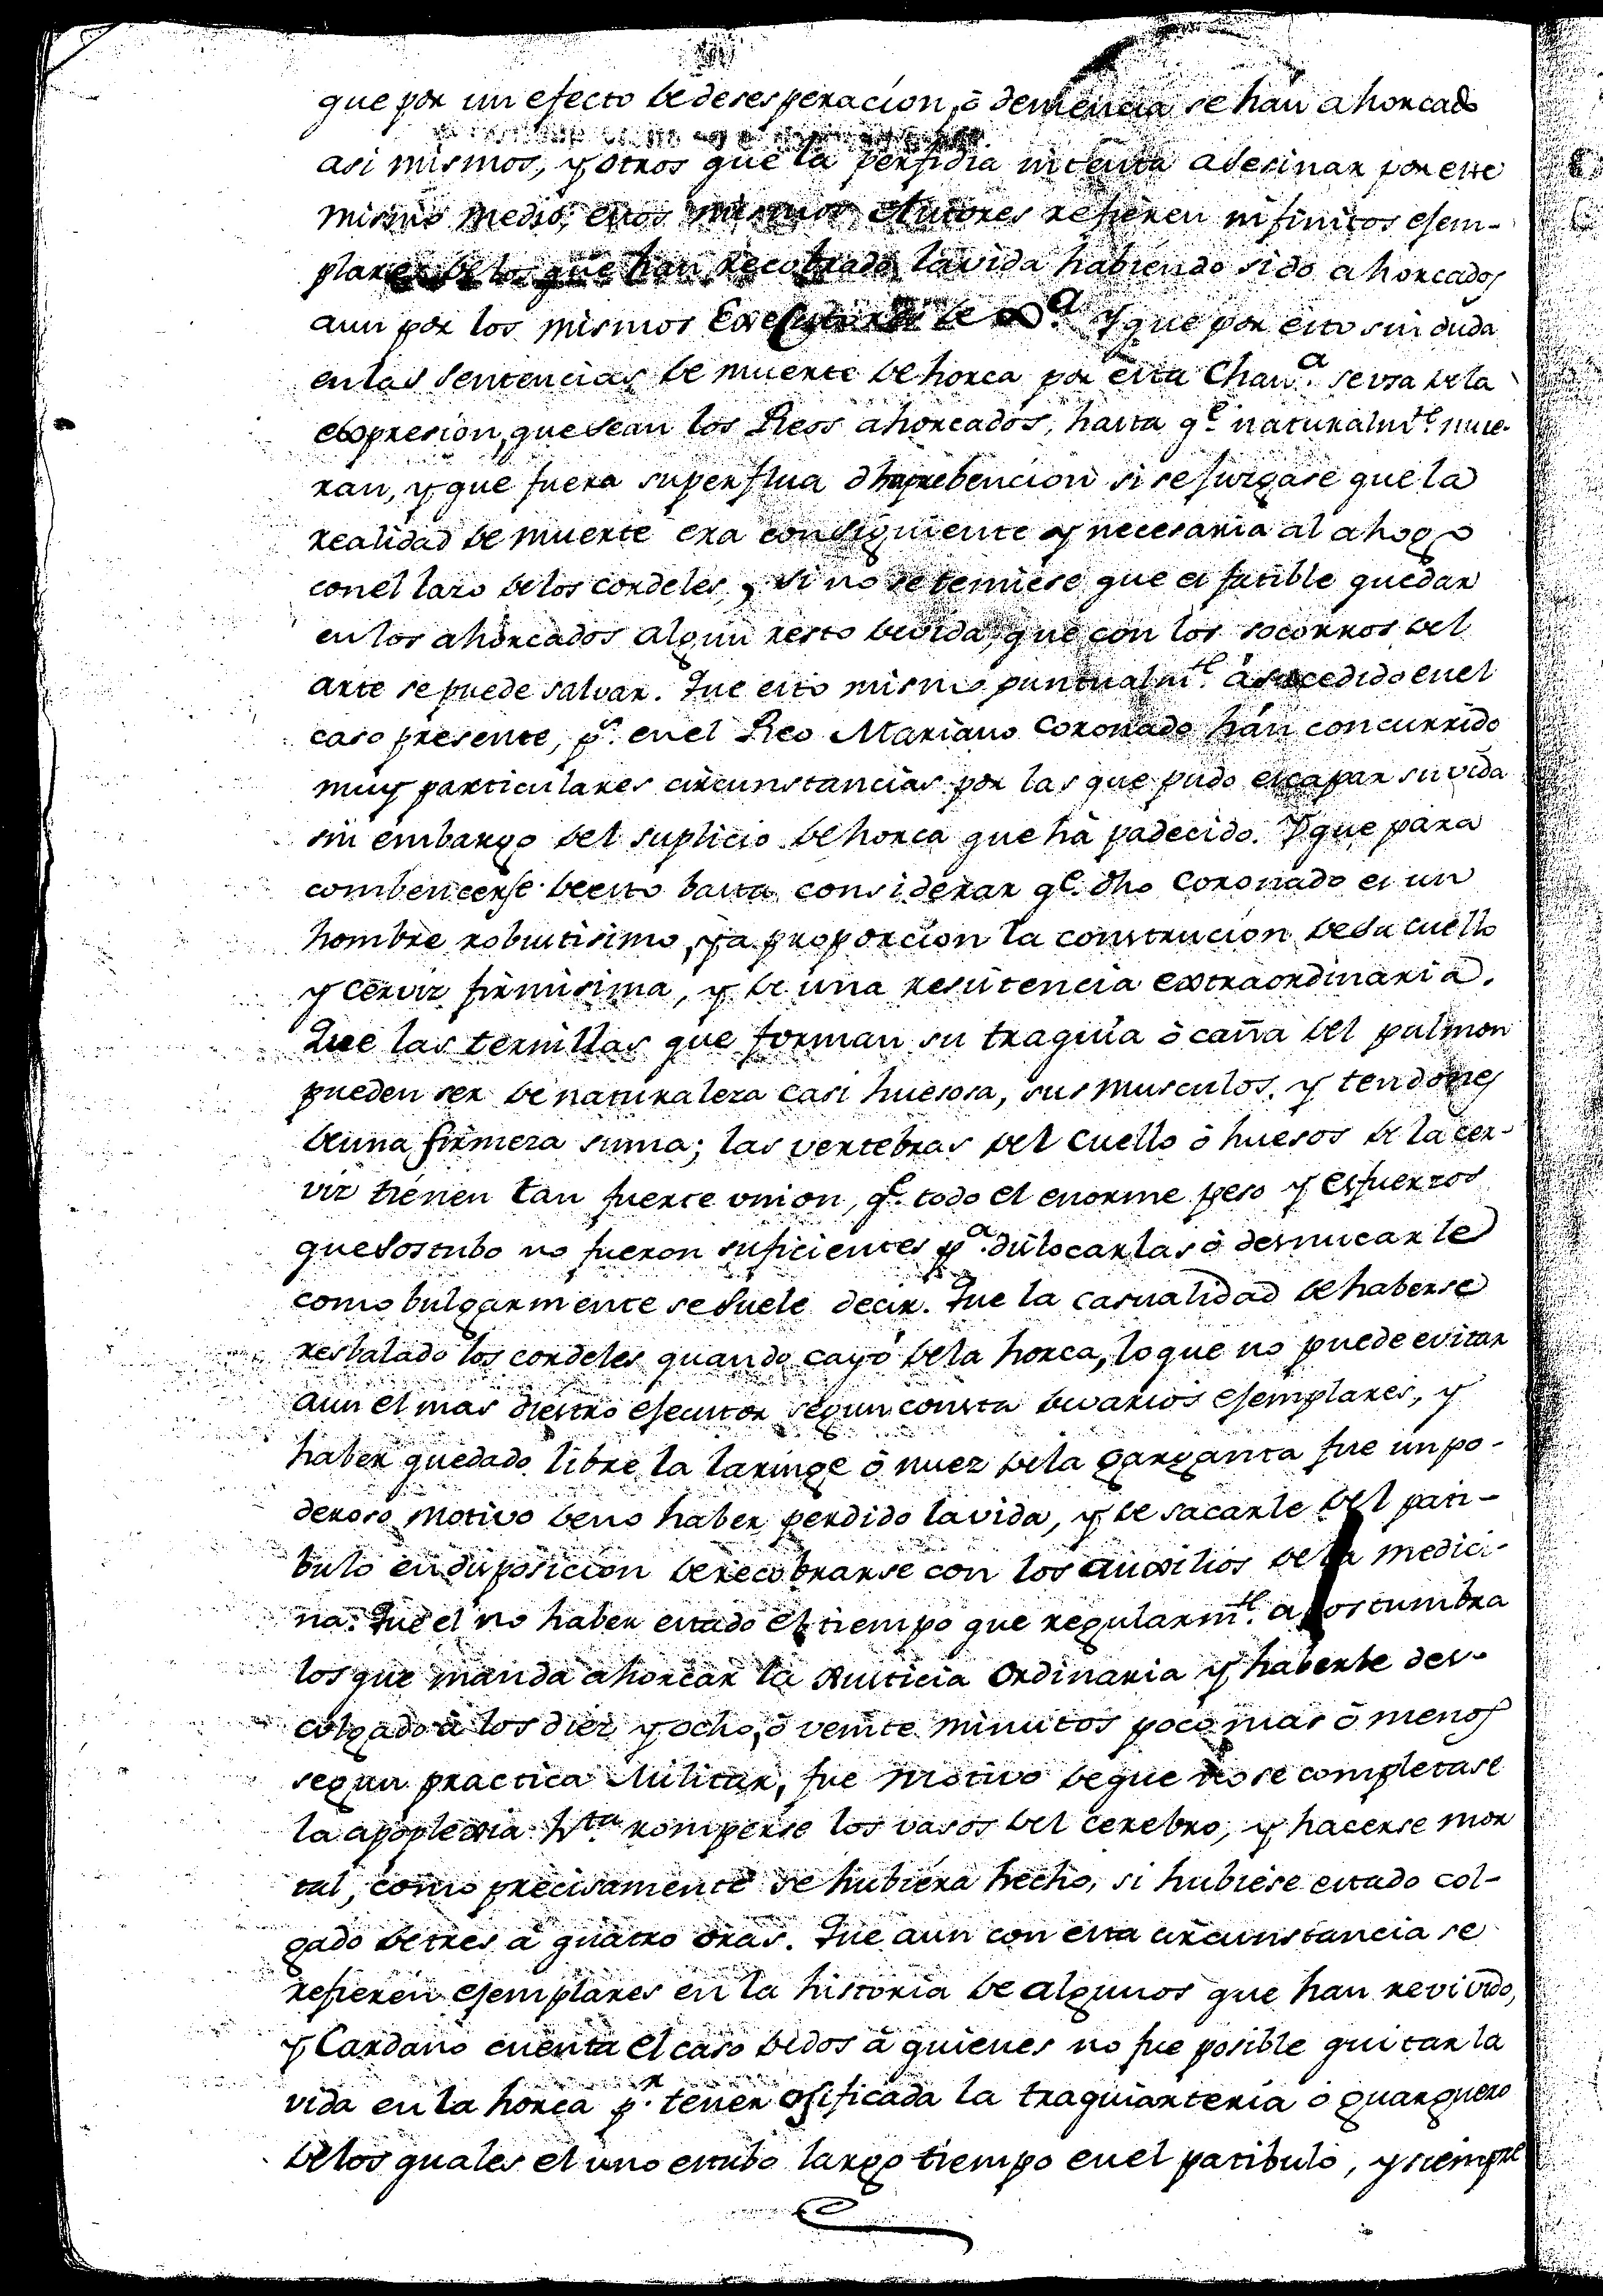 que por un efecto de desesperacion, ò demencia se hán ahorcado
asi mismos, y otros que la perfidia intenta asesinar por este
mismo medio, estos mismos Autores refieren infinitos esem-
plares de los que han recobrado la vida habiendo sido ahorcados
aun por los mismos Executores de Y que por esto sin duda
en las sentencias de muerte de horca por esta Chan.ª se usa de la
expresion, que sean los Reos ahorcados, hasta q.e naturalm.te mue-
ran, y que fuera superflua dha prebencion si se juzgase que la
realidad de muerte era consiguiente y necesaria al ahogo
con el lazo de los cordeles, y si no se temiese que es fatible quedar
en los ahorcados algun resto de vida, que con los socorros del
arte se puede salvar. Que esto mismo puntualm.te à sucedido en el
caso presente, p.r en el Reo Mariano Coronado hán concurrido
muy particulares circunstancias por las que pudo escapar su vida
sin embargo del suplicio de horca que há padecido. Y que para
combencerse de esto basta considerar q.e dho Coronado es un
hombre robustisimo, y a proporcion la construcion de su cuello
y cerviz firmisima, y de una resistencia extraordinaria.
Que las ternillas que forman su traquia ò caña del pulmon
pueden ser de naturaleza casi huesosa, sus musculos, y tendones
de una firmeza suma; las vertebras del cuello ò huesos de la cer-
viz tienen tan fuerte union, q.e todo el enorme peso y esfuerzos
que sostubo no fueron suficientes p.ª dislocarlas ò desnucarle
como bulgarmente se suele decir. Que la casualidad de haberse
resbalado los cordeles quando cayó de la horca, lo que no puede evitar
aun el mas diestro esecutor segun consta de varios esemplares, y
haber quedado libre la laringe ò nuez de la garganta fue un po-
deroso motivo de no haber perdido la vida, y de sacarle del pati-
bulo en disposicion de recobrarse con los auxilios de la medici-
na. Que el no haber estado el tiempo que regularm.te acostumbra
los que manda ahorcar la Justicia Ordinaria y haberle des-
colgado à los diez y ocho, ò veinte minutos poco mas ò menos
segun practica Militar, fue motivo de que no se completase
la apoplexia h.ta romperse los vasos del cerebro, y hacerse mor
tal, como precisamente se hubiera hecho, si hubiese estado col-
gado de tres à quatro oras. Que aun con esta circunstancia se
refieren esemplares en la historia de algunos que han revivido,
y Cardano cuenta el caso de dos à quienes no fue posible quitar la
vida en la horca p.r tener osificada la traquiarteria ò guarguero
de los quales el uno estubo largo tiempo en el patibulo, y siempre